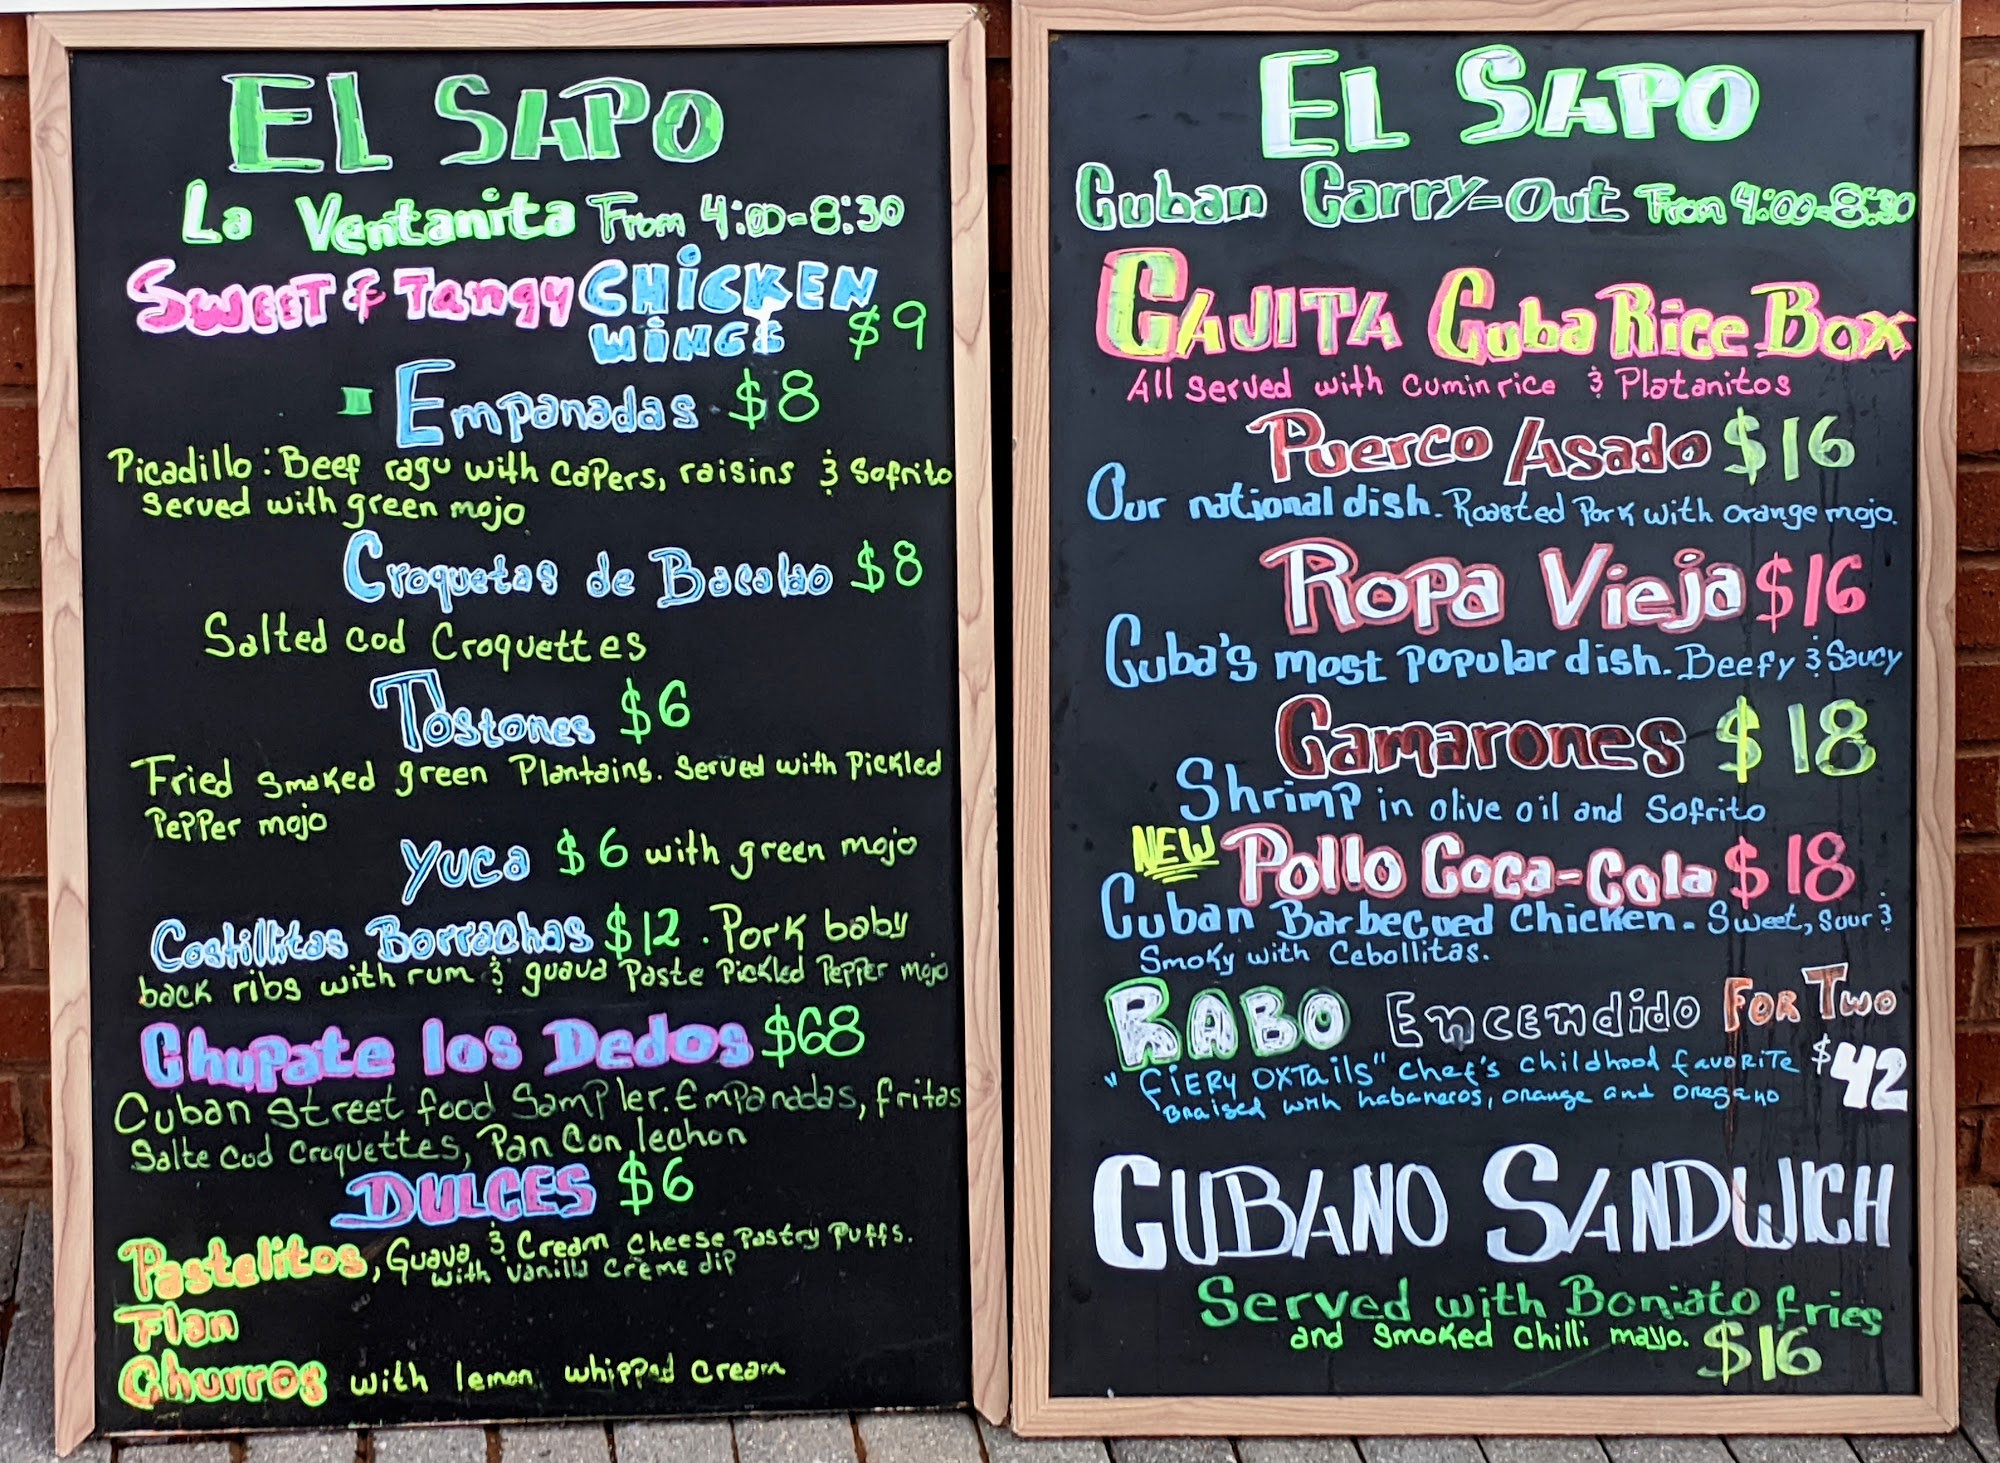 EL SAPO
La Ventanita From 4:00-8:30
Sweet & Tangy CHICKEN
WINGS $9
Empanadas $8
Picadillo: Beef ragu with capers, raisins & Sofrito
served with green mojo
Croquetas de Bacalao $8
Salted cod Croquettes
Tostones $6
Fried smoked green Plantains. Served with Pickled
Pepper mojo
Yuca $6 with green mojo
Costillitas Borrachas $12. Pork baby
back ribs with rum & guava Paste Pickled Pepper mojo
Chupate los Dedos $68
Cuban Street food Sampler. Empanadas, fritas
Salte cod Croquettes, Pan Con lechon
DULCES $6
Pastelitos, Guava & Cream cheese Pastry Puffs.
with vanilla crème dip
Flan
Churros with lemon whipped cream
EL SAPO
Cuban Carry-Out From 4:00-8:30
CAJITA Cuba Rice Box
All served with cumin rice & Platanitos
Puerco Asado $16
Our national dish. Roasted Pork with orange mojo.
Ropa Vieja $16
Cuba's most popular dish. Beefy & Saucy
Camarones $18
Shrimp in olive oil and Sofrito
NEW Pollo Coca-Cola $18
Cuban Barbecued Chicken. Sweet, sour &
Smoky with Cebollitas.
RABO Encendido For Two
"Fiery Oxtails" Chef's childhood favorite $42
Braised with habaneros, orange and oregano
CUBANO SANDWICH
Served with Boniato fries
and smoked chilli mayo. $16